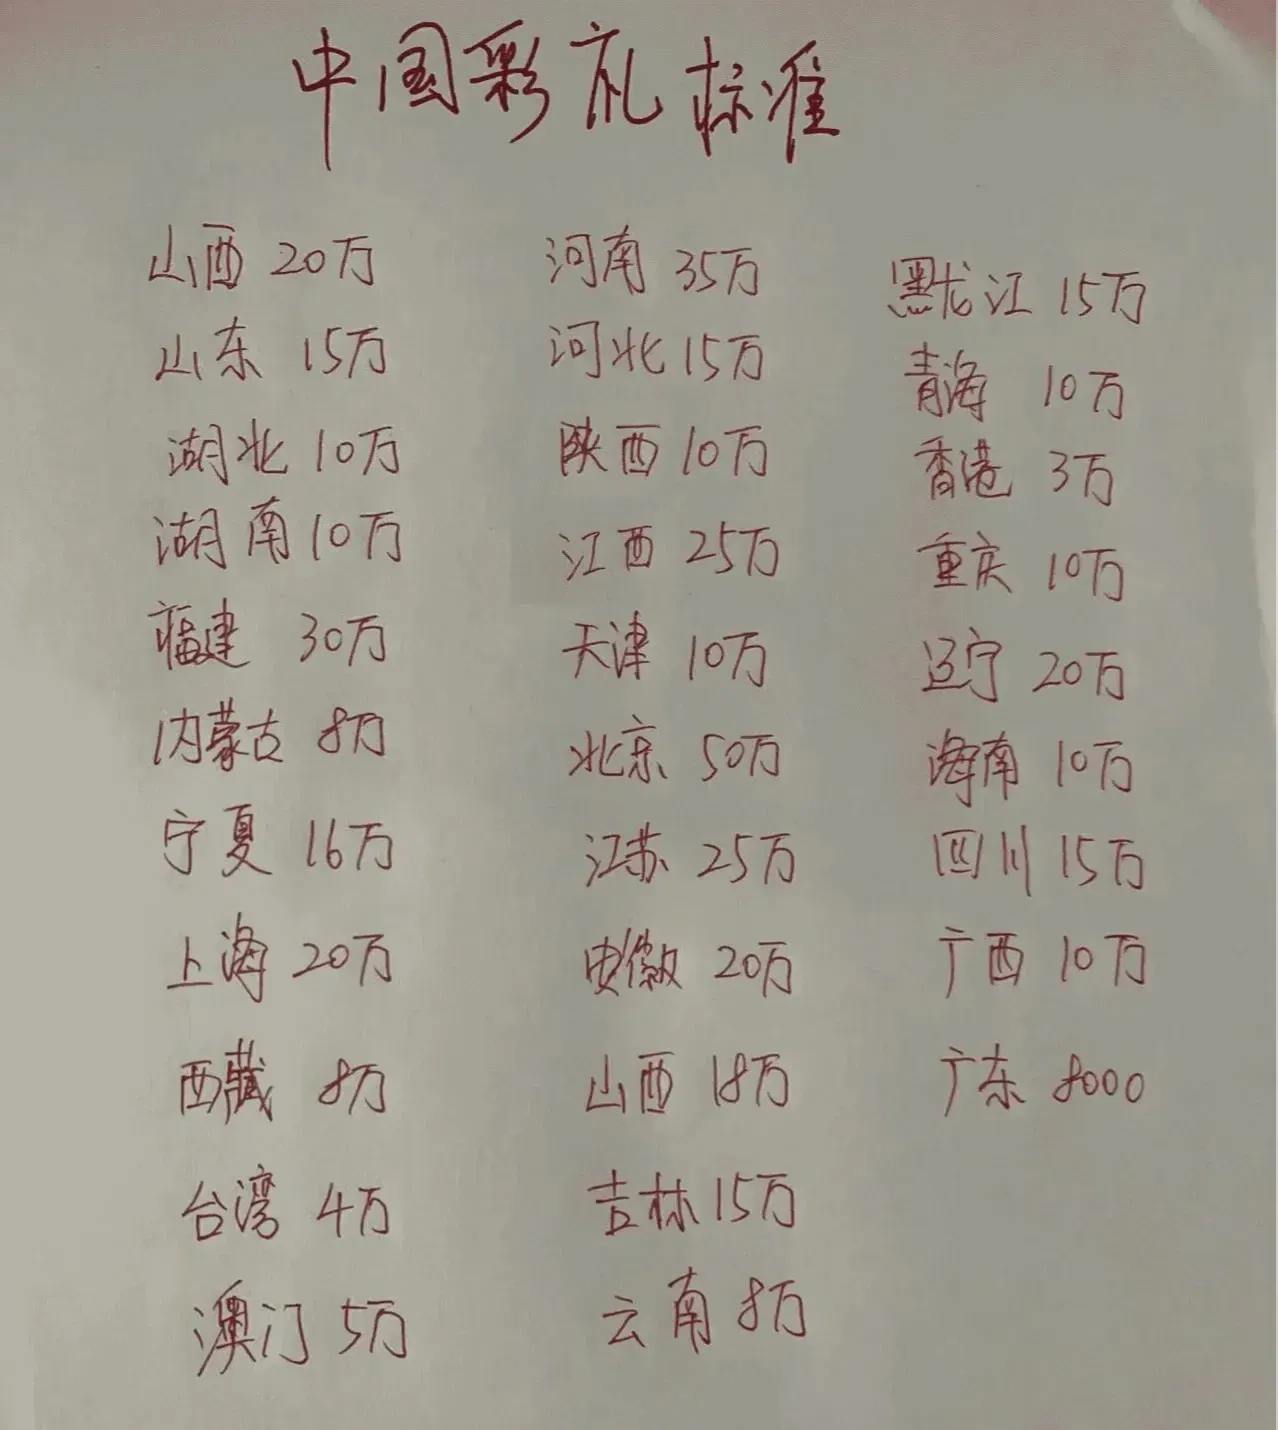 中国彩礼标准
山西 20万
山东 15万
湖北 10万
湖南 10万
福建 30万
内蒙古 8万
宁夏 16万
上海 20万
西藏 8万
台湾 4万
澳门 5万
河南 35万
河北 15万
陕西 10万
江西 25万
天津 10万
北京 50万
江苏 25万
安徽 20万
山西 18万
吉林 15万
云南 8万
黑龙江 15万
青海 10万
香港 3万
重庆 10万
辽宁 20万
海南 10万
四川 15万
广西 10万
广东 8000